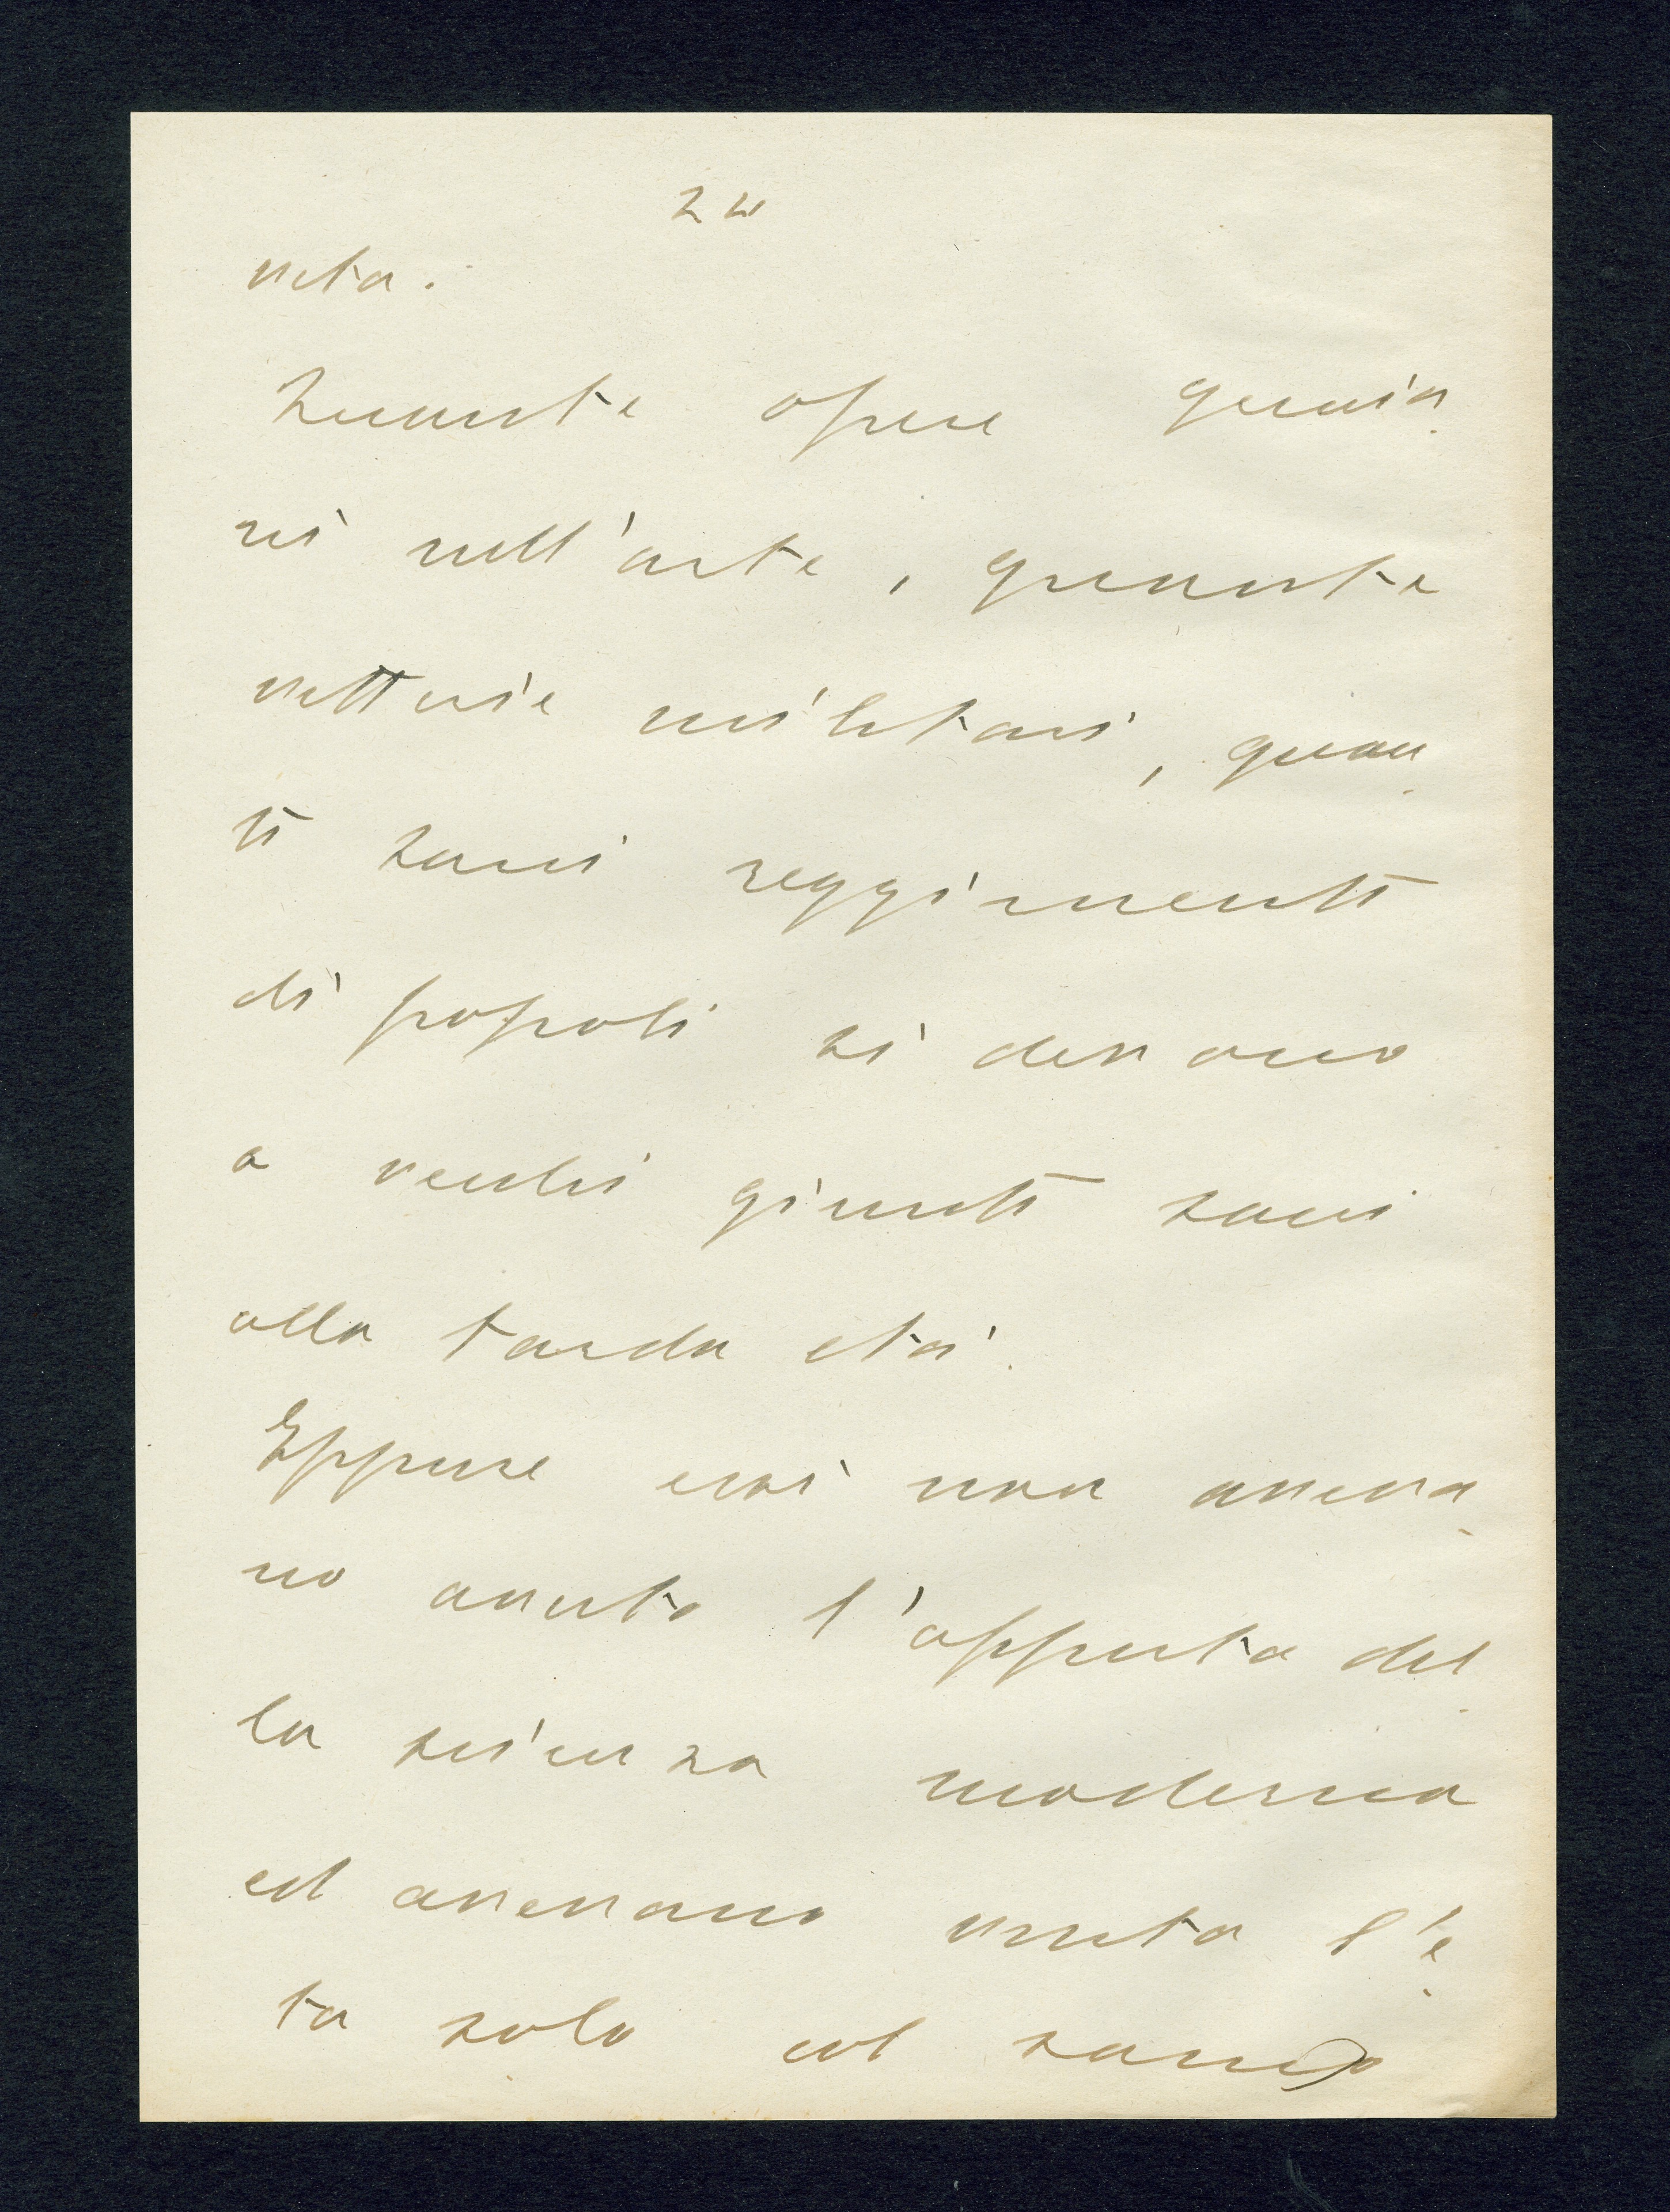 vita.
Quante opere genia
li nell'arte, quante
vittorie militari, quan
ti savi reggimenti
di popoli si devono
a vecchi giunti sani
alla tarda età.
Eppure essi non aveva
no avuto l'apporto del
la scienza moderna
ed avevano vinto l'e
tà solo col sano